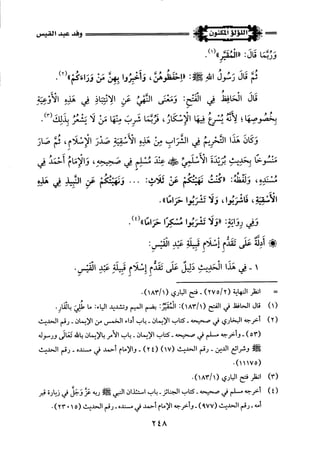 اللؤلؤ المكنون
وفد عبد القيس
وَرُبَّمَا قَالَ: «الْمُقَيَّرِ»(١).
ثُمَّ قَالَ رَسُولُ اللهِ ﷺ: «احْفَظُوهُنَّ، وَأَخْبِرُوا بِهِنَّ مَنْ وَرَاءَكُمْ»(٢).
قَالَ الْحَافِظُ فِي الْفَتْحِ: وَمَعْنَى النَّهْيِ عَنِ الِانْتِبَاذِ فِي هَذِهِ الْأَوْعِيَةِ
بِخُصُوصِهَا؛ لِأَنَّهُ يُسْرِعُ فِيهَا الْإِسْكَارُ، فَرُبَّمَا شَرِبَ مِنْهَا مَنْ لَا يَشْعُرُ بِذَلِكَ(٣).
وَكَانَ هَذَا التَّحْرِيمُ فِي الشَّرَابِ مِنْ هَذِهِ الْأَسْقِيَةِ صَدْرَ الْإِسْلَامِ، ثُمَّ صَارَ
مَنْسُوخًا بِحَدِيثِ بُرَيْدَةَ الْأَسْلَمِيِّ ﷺ عِنْدَ مُسْلِمٍ فِي صَحِيحِهِ، وَالْإِمَامِ أَحْمَدَ فِي
مُسْنَدِهِ، وَلَفْظُهُ: «كُنْتُ نَهَيْتُكُمْ عَنْ ثَلَاثٍ: ... وَنَهَيْتُكُمْ عَنِ النَّبِيذِ فِي هَذِهِ
الْأَسْقِيَةِ، فَاشْرَبُوا، وَلَا تَشْرَبُوا حَرَامًا».
وَفِي رِوَايَةٍ: «وَلَا تَشْرَبُوا مُسْكِرًا حَرَامًا»(٤).
❋ أَدِلَّةٌ عَلَى تَقَدُّمِ إِسْلَامِ قَبِيلَةِ عَبْدِ الْقَيْسِ:
١ - فِي هَذَا الْحَدِيثِ دَلِيلٌ عَلَى تَقَدُّمِ إِسْلَامِ قَبِيلَةِ عَبْدِ الْقَيْسِ.
= انظر النهاية (٢٧٥/٢) - فتح الباري (١٨٣/١).
(١) قال الحافظ في الفتح (١٨٣/١): الْمُقَيَّرُ: بضم الميم وتشديد الياء: ما طُلِيَ بالقار.
(٢) أخرجه البخاري في صحيحه - كتاب الإيمان - باب أداء الخمس من الإيمان - رقم الحديث
(٥٣) - وأخرجه مسلم في صحيحه - كتاب الإيمان - باب الأمر بالإيمان بالله تَعَالَى ورسوله
ﷺ وشرائع الدين - رقم الحديث (١٧) (٢٤) - والإمام أحمد في مسنده - رقم الحديث
(١١١٧٥).
(٣) انظر فتح الباري (١٨٣/١).
(٤) أخرجه مسلم في صحيحه - كتاب الجنائز - باب استئذان النبي ﷺ ربه عَزَّ وَجَلَّ في زيارة قبر
أمه - رقم الحديث (٩٧٧) - وأخرجه الإمام أحمد في مسنده - رقم الحديث (٢٣٠١٥).
٢٤٨